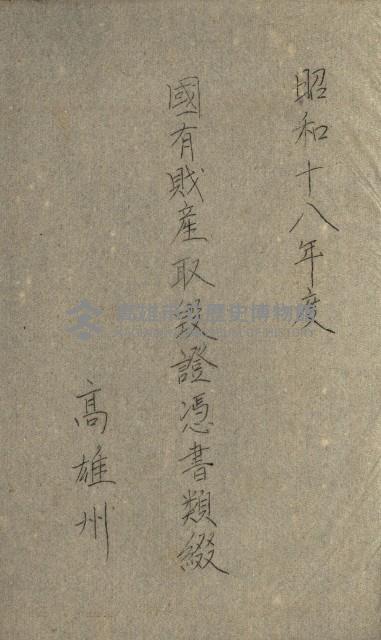 昭和十八年度
國有財産取毀證憑書類綴
高雄州
高雄市立歷史博物館
KAOHSIUNG MUSEUM OF HISTORY